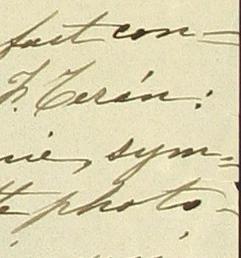 fast con-
F. Terán:
nie, sym-
photo-